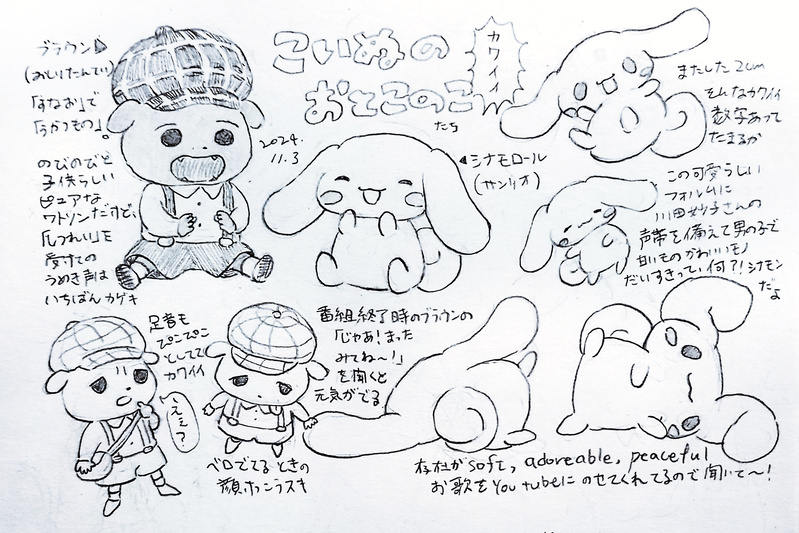 こいぬの
おとこのこ
たち
カワイイ
2024.
11.3
ブラウン
(おしりたんてい)
「すなお」で
「うかつもの」。
のびのびと
子供らしい
ピュアな
ワトソンだけど、
「しつれい」を
受けての
うめき声は
いちばんカゲキ
シナモロール
(サンリオ)
またした2cm
そんなカワイイ
数字あって
たまるか
この可愛らしい
フォルムに
川田妙子さんの
声帯を備えて男の子で
甘いものかわいいモノ
だいすきって、何?!シナモン
だよ
足音も
ぴこぴこ
としてて
カワイイ
えぇ?
ベロでてるときの
顔ホンラスキ
番組終了時のブラウンの
「じゃあ!まった
みてね〜!」
を聞くと
元気がでる
存在がsoft, adoreable, peaceful
お歌をYou tubeにのせてくれてるので聞いて〜!